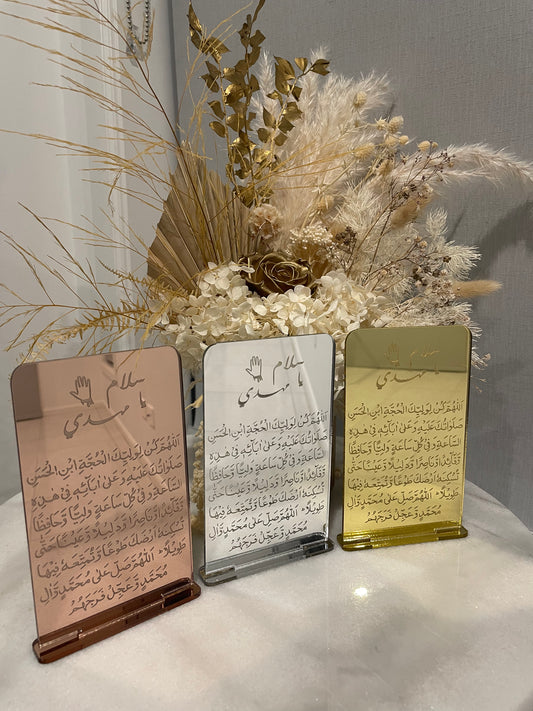 سلام
يا مهدي
اَللّٰهُمَّ كُنْ لِوَلِيِّكَ الْحُجَّةِ ابْنِ الْحَسَنِ
صَلَوَاتُكَ عَلَيْهِ وَ عَلىٰ اٰبَآئِهِ فِيْ هٰذِهِ
السَّاعَةِ وَ فِيْ كُلِّ سَاعَةٍ وَلِيًّا وَّ حَافِظًا
وَّ قَآئِدًا وَّ نَاصِرًا وَّ دَلِيْلًا وَّ عَيْنًا حَتّٰى
تُسْكِنَهُ اَرْضَكَ طَوْعًا وَّ تُمَتِّعَهُ فِيْهَا
طَوِيْلًا اَللّٰهُمَّ صَلِّ عَلىٰ مُحَمَّدٍ وَّ اٰلِ
مُحَمَّدٍ وَّ عَجِّلْ فَرَجَهُمْ
سلام
يا مهدي
اَللّٰهُمَّ كُنْ لِوَلِيِّكَ الْحُجَّةِ ابْنِ الْحَسَنِ
صَلَوَاتُكَ عَلَيْهِ وَ عَلىٰ اٰبَآئِهِ فِيْ هٰذِهِ
السَّاعَةِ وَ فِيْ كُلِّ سَاعَةٍ وَلِيًّا وَّ حَافِظًا
وَّ قَآئِدًا وَّ نَاصِرًا وَّ دَلِيْلًا وَّ عَيْنًا حَتّٰى
تُسْكِنَهُ اَرْضَكَ طَوْعًا وَّ تُمَتِّعَهُ فِيْهَا
طَوِيْلًا اَللّٰهُمَّ صَلِّ عَلىٰ مُحَمَّدٍ وَّ اٰلِ
مُحَمَّدٍ وَّ عَجِّلْ فَرَجَهُمْ
سلام
يا مهدي
اَللّٰهُمَّ كُنْ لِوَلِيِّكَ الْحُجَّةِ ابْنِ الْحَسَنِ
صَلَوَاتُكَ عَلَيْهِ وَ عَلىٰ اٰبَآئِهِ فِيْ هٰذِهِ
السَّاعَةِ وَ فِيْ كُلِّ سَاعَةٍ وَلِيًّا وَّ حَافِظًا
وَّ قَآئِدًا وَّ نَاصِرًا وَّ دَلِيْلًا وَّ عَيْنًا حَتّٰى
تُسْكِنَهُ اَرْضَكَ طَوْعًا وَّ تُمَتِّعَهُ فِيْهَا
طَوِيْلًا اَللّٰهُمَّ صَلِّ عَلىٰ مُحَمَّدٍ وَّ اٰلِ
مُحَمَّدٍ وَّ عَجِّلْ فَرَجَهُمْ